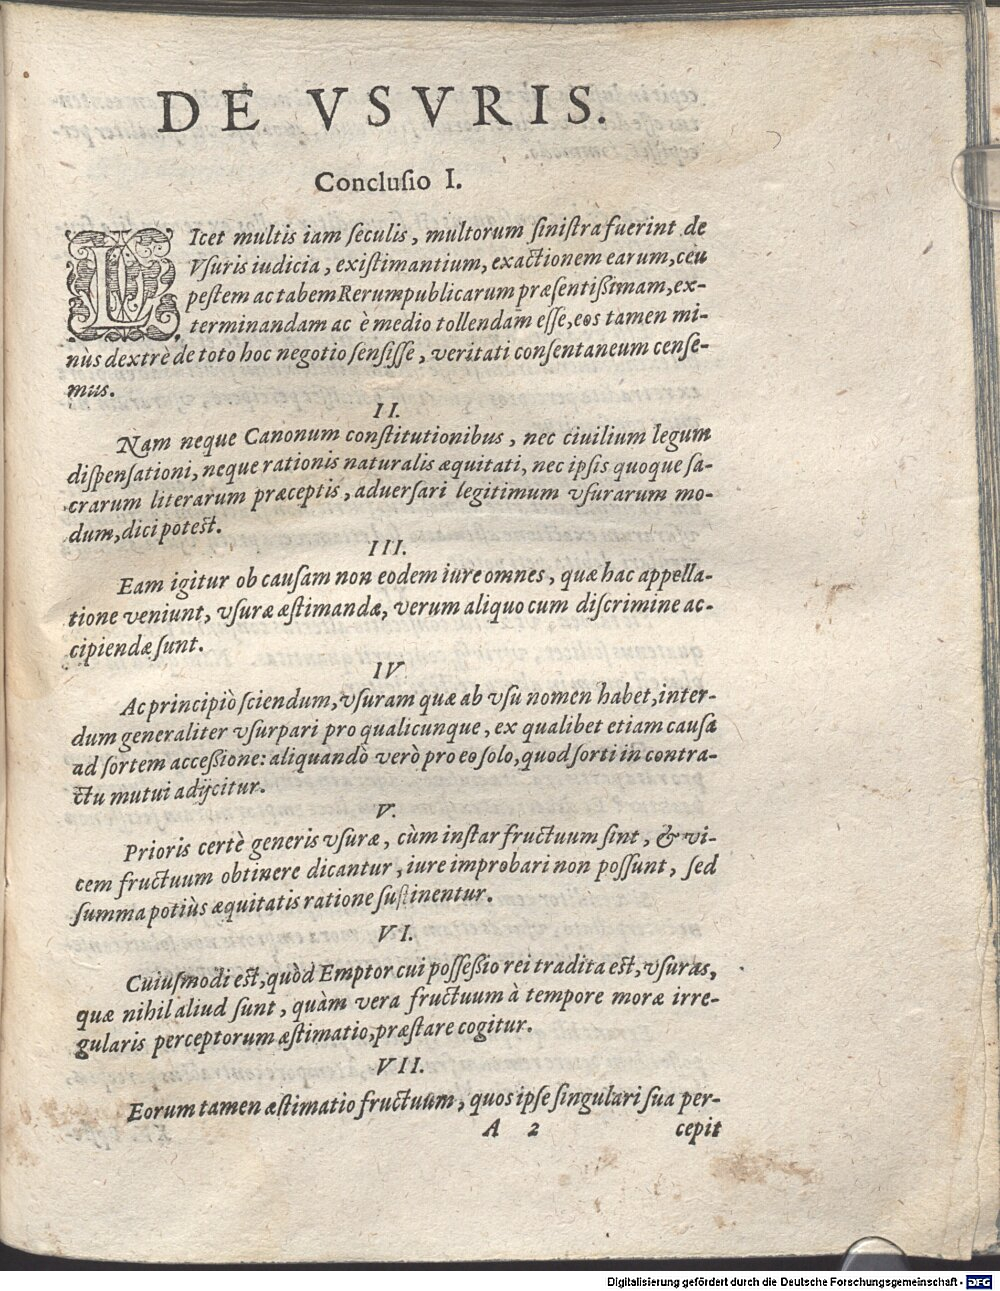 DE VSVRIS.
Conclusio I.
LIcet multis iam seculis, multorum sinistra fuerint de
Vsuris iudicia, existimantium, exactionem earum, ceu
pestem ac tabem Rerumpublicarum præsentissimam, ex-
terminandam ac è medio tollendam esse, eos tamen mi-
nùs dextrè de toto hoc negotio sensisse, veritati consentaneum cense-
mus.
II.
Nam neque Canonum constitutionibus, nec ciuilium legum
dispensationi, neque rationis naturalis æquitati, nec ipsis quoque sa-
crarum literarum præceptis, aduersari legitimum vsurarum mo-
dum, dici potest.
III.
Eam igitur ob causam non eodem iure omnes, quæ hac appella-
tione veniunt, vsuræ æstimandæ, verum aliquo cum discrimine ac-
cipiendæ sunt.
IV
Ac principiò sciendum, vsuram quæ ab vsu nomen habet, inter-
dum generaliter vsurpari pro qualicunque, ex qualibet etiam causa
ad sortem accessione: aliquandò verò pro eo solo, quod sorti in contra-
ctu mutui adijcitur.
V.
Prioris certè generis vsuræ, cùm instar fructuum sint, & vi-
cem fructuum obtinere dicantur, iure improbari non possunt, sed
summa potiùs æquitatis ratione sustinentur.
VI.
Cuiusmodi est, quòd Emptor cui possessio rei tradita est, vsuras,
quæ nihil aliud sunt, quàm vera fructuum à tempore moræ irre-
gularis perceptorum æstimatio, præstare cogitur.
VII.
Eorum tamen æstimatio fructuum, quos ipse singulari sua per-
A 2 cepit
Digitalisierung gefördert durch die Deutsche Forschungsgemeinschaft - DFG